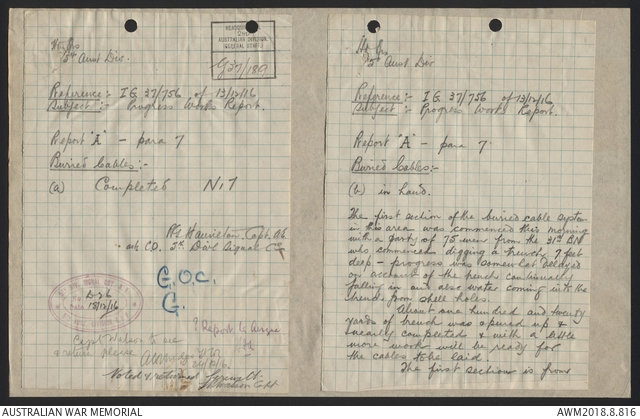 Hd Qrs
5th Aust Div.
HEADQUARTERS
AUSTRALIAN DIVISION
GENERAL STAFF
G37/180
Reference:- I.G. 37/756 of 13/12/16
Subject:- Progress Works Report.
Report "A" - para 7
Buried Cables:-
(a) Completed Nil
Hamilton. Capt.
O.C. 5th Div Signal Coy
G.O.C.
G.
15/12/16
? Report to
Capt Watson to see
& return please
Noted & returned herewith
Watson Capt
Hd Qrs
5th Aust Div
Reference:- I.G. 37/756 of 13/12/16
Subject:- Progress Works Report.
Report "A" - para 7
Buried Cables:-
(b) in hand.
The first section of the buried cable system
in this area was commenced this morning
with a party of 75 men from the 31st BN
who commenced digging a trench 7 feet
deep - progress was somewhat delayed
on account of the trench continually
falling in and also water coming into the
trench from shell holes.
About one hundred and twenty
yards of trench was opened up &
nearly completed & with a little
more work will be ready for
the cables to be laid.
The first section is from
AUSTRALIAN WAR MEMORIAL
AWM2018.8.816